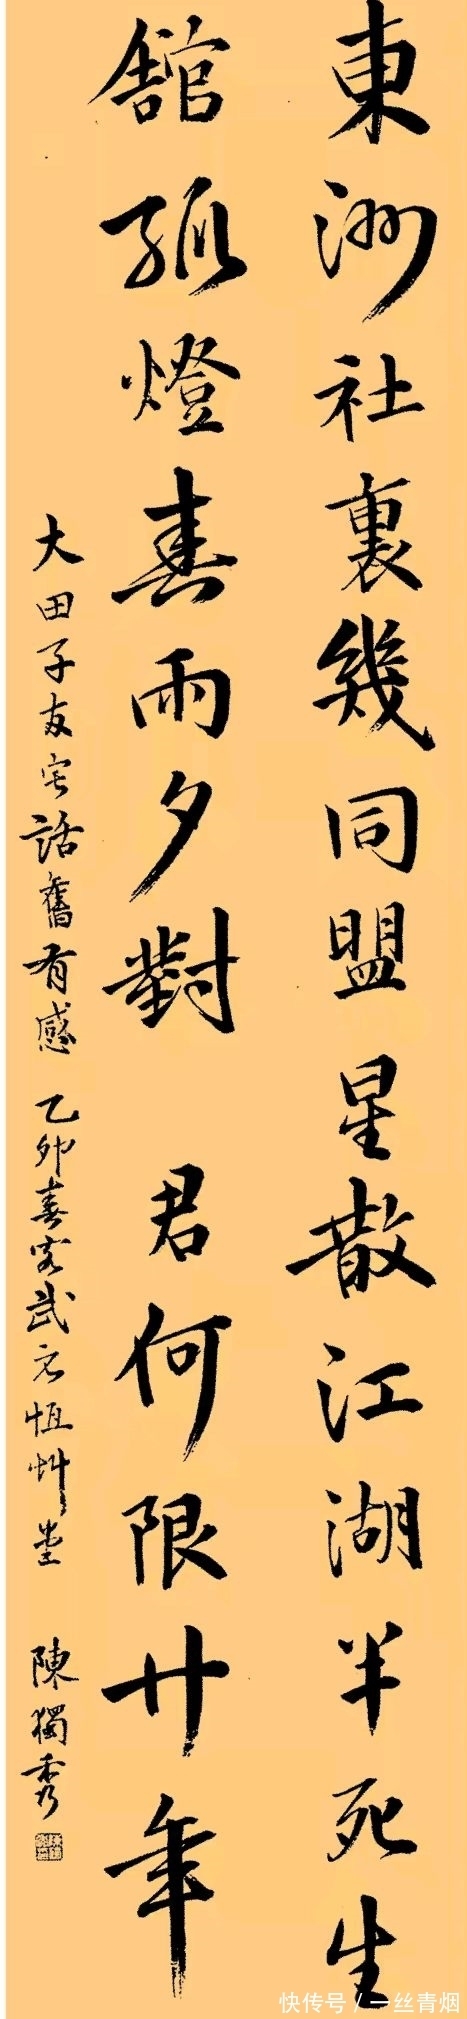 東洲社裏幾同盟星散江湖半死生
舘孤燈春雨夕對 君何限廿年
大田子友宅話舊有感 乙卯春客武恆艸堂 陳獨秀
快传号 / 一丝青烟